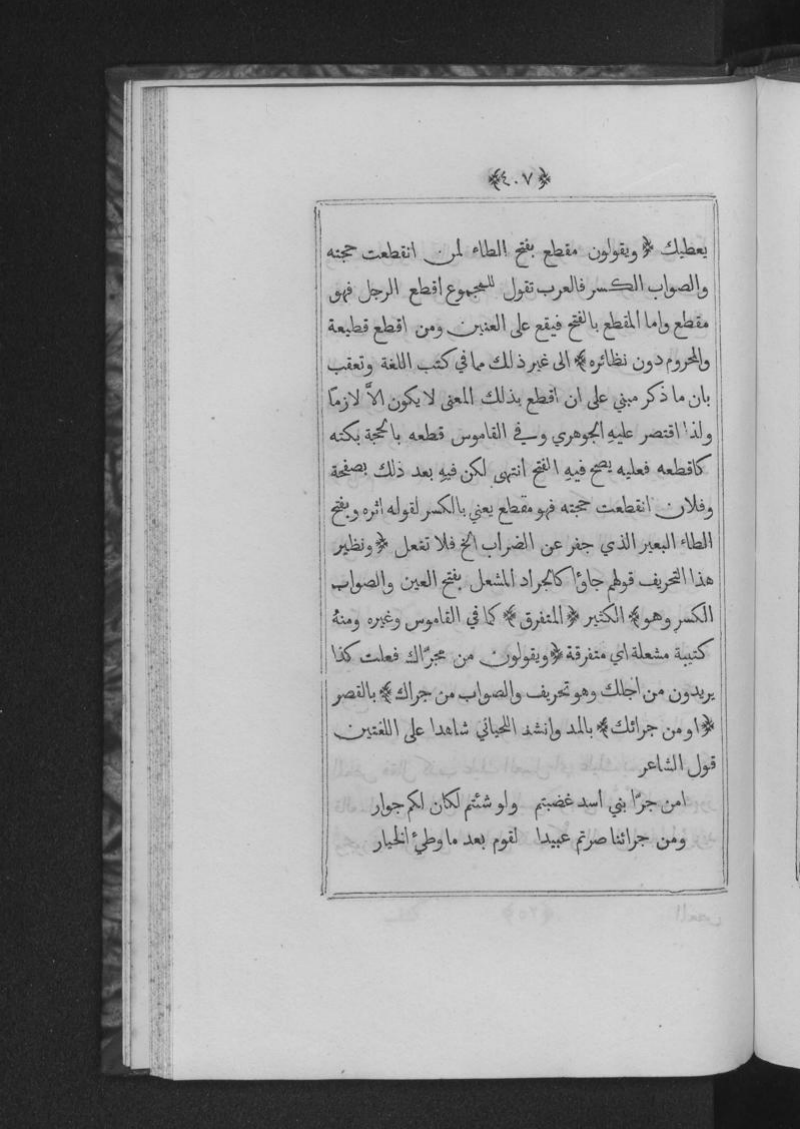 ﴿٤٠٧﴾
يعطيك ﴿ ويقولون مقطع بفتح الطاء لمن انقطعت حجته
والصواب الكسر فالعرب تقول للمحجوج اقطع الرجل فهو
مقطع واما المقطع بالفتح فيقع على العنين ومن اقطع قطيعة
والمحروم دون نظائره ﴾ الى غير ذلك مما في كتب اللغة وتعقب
بان ما ذكر مبني على ان اقطع بذلك المعنى لا يكون الاَّ لازمًا
ولذا اقتصر عليهِ الجوهري وفي القاموس قطعه بالحجة بكته
كاقطعه فعليه يصح فيهِ الفتح انتهى لكن فيهِ بعد ذلك بصفحة
وفلان انقطعت حجته فهو مقطع يعني بالكسر لقوله اثره وبفتح
الطاء البعير الذي جفر عن الضراب الخ فلا تغفل ﴿ ونظير
هذا التحريف قولهم جاؤا كالجراد المشعل بفتح العين والصواب
الكسر وهو ﴾ الكثير ﴿ المتفرق ﴾ كما في القاموس وغيره ومنهُ
كتيبة مشعلة اي متفرقة ﴿ ويقولون من مجرّاك فعلت كذا
يريدون من اجلك وهو تحريف والصواب من جراك ﴾ بالقصر
﴿ او من جرائك ﴾ بالمد وانشد اللحياني شاهدا على اللغتين
قول الشاعر
امن جرّا بني اسد غضبتم ولو شئتم لكان لكم جوار
ومن جرائنا صرتم عبيدا لقوم بعد ما وطئ الخبار